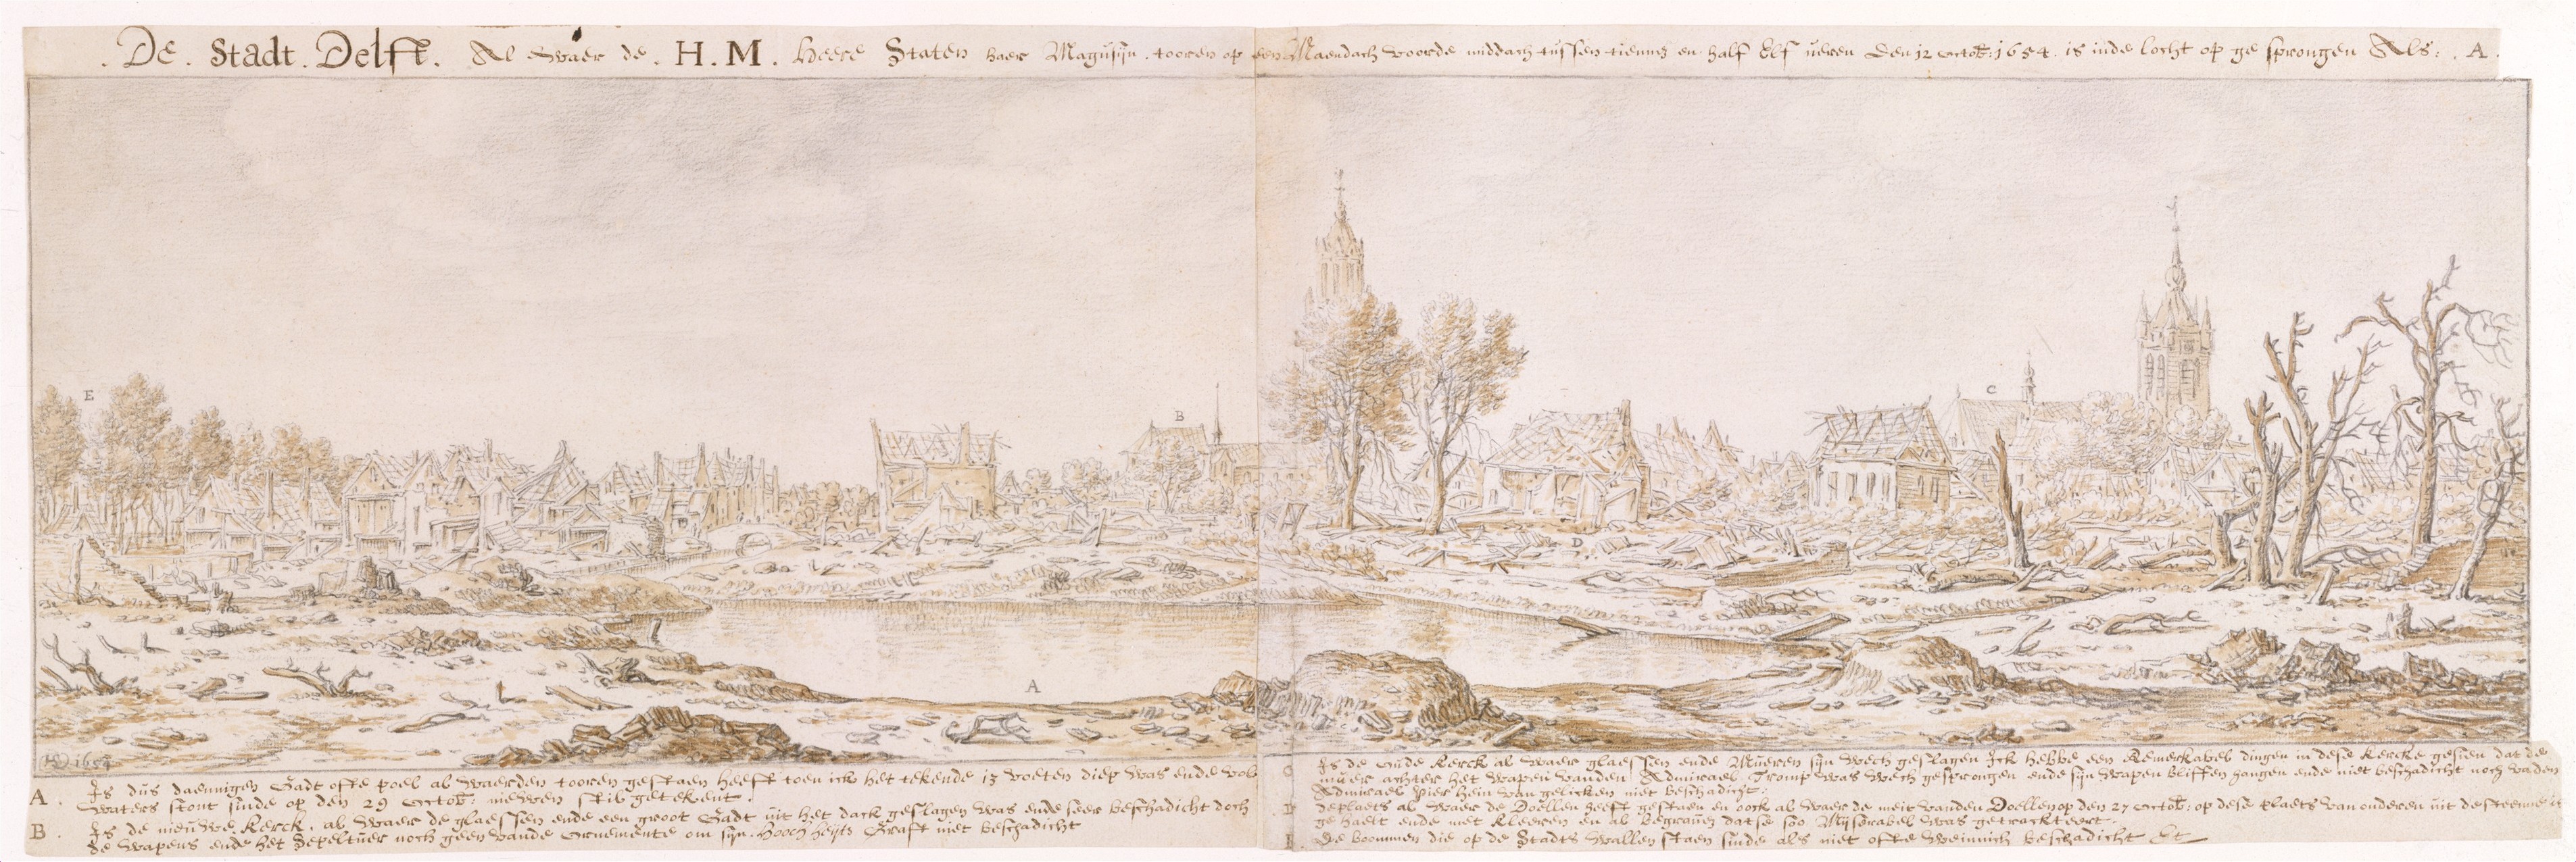 De Stadt Delft. Al Waer de H.M. Heere Staten haer Magusijn tooren op den Maendach voorde middach tussen tienne en half Elf ueren Den 12 octob: 1654. is inde locht op ge sprongen Als: A.
E
B
C
D
A
1654
A. Is dus daennigen Gadt ofte poel al waerden tooren gestaen heeft toen ick het tekende 15 voeten diep was ende vol
waters stont sinde op den 29 octob: nieuwen stib getekent.
B. Is de nieuwe Kerck. al waer de glaessen ende een groot Gadt uit het dack geslagen was ende seer beschadicht doch
de wapens ende het Sepeltuer noch geen vande Ornemente om sijn Hooch heijts Graft niet beschadicht
C Is de Oude Kerck al waer glaessen ende Mueren sijn wech geslagen Ick hebbe een Remerkabel dingen in dese Kercke gesien dat de
muer achter het wapen vanden Admirael Tromp was wech gesprongen ende sijn wapen bliffen hangen ende niet beschadicht noch vanden
Admirael Pier hein van gelicken niet beschadicht:
D deplaets al waer de Doellen heeft gestaen en oock al waer de meit vanden Doellen op den 27 octob: op dese plaets van onderen uit de steenne is
ge haelt ende met kleeren en al begraven datse soo Mijserabel was getracktert.
E De boommen die op de Stadts wallen staen sinde als niet ofte weinnich beschadicht Et